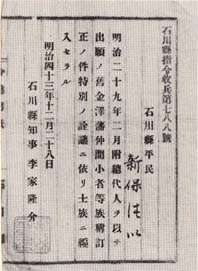 石川縣指令收兵第七八八號
石川縣平民
新保
明治二十九年二月附總代人ヲ以テ
出願ノ舊金澤藩仲間小者等族稱訂
正ノ件特別ノ詮議ニ依リ士族ニ編
入セラル
明治四十三年十二月二十八日
石川縣知事 李家隆介